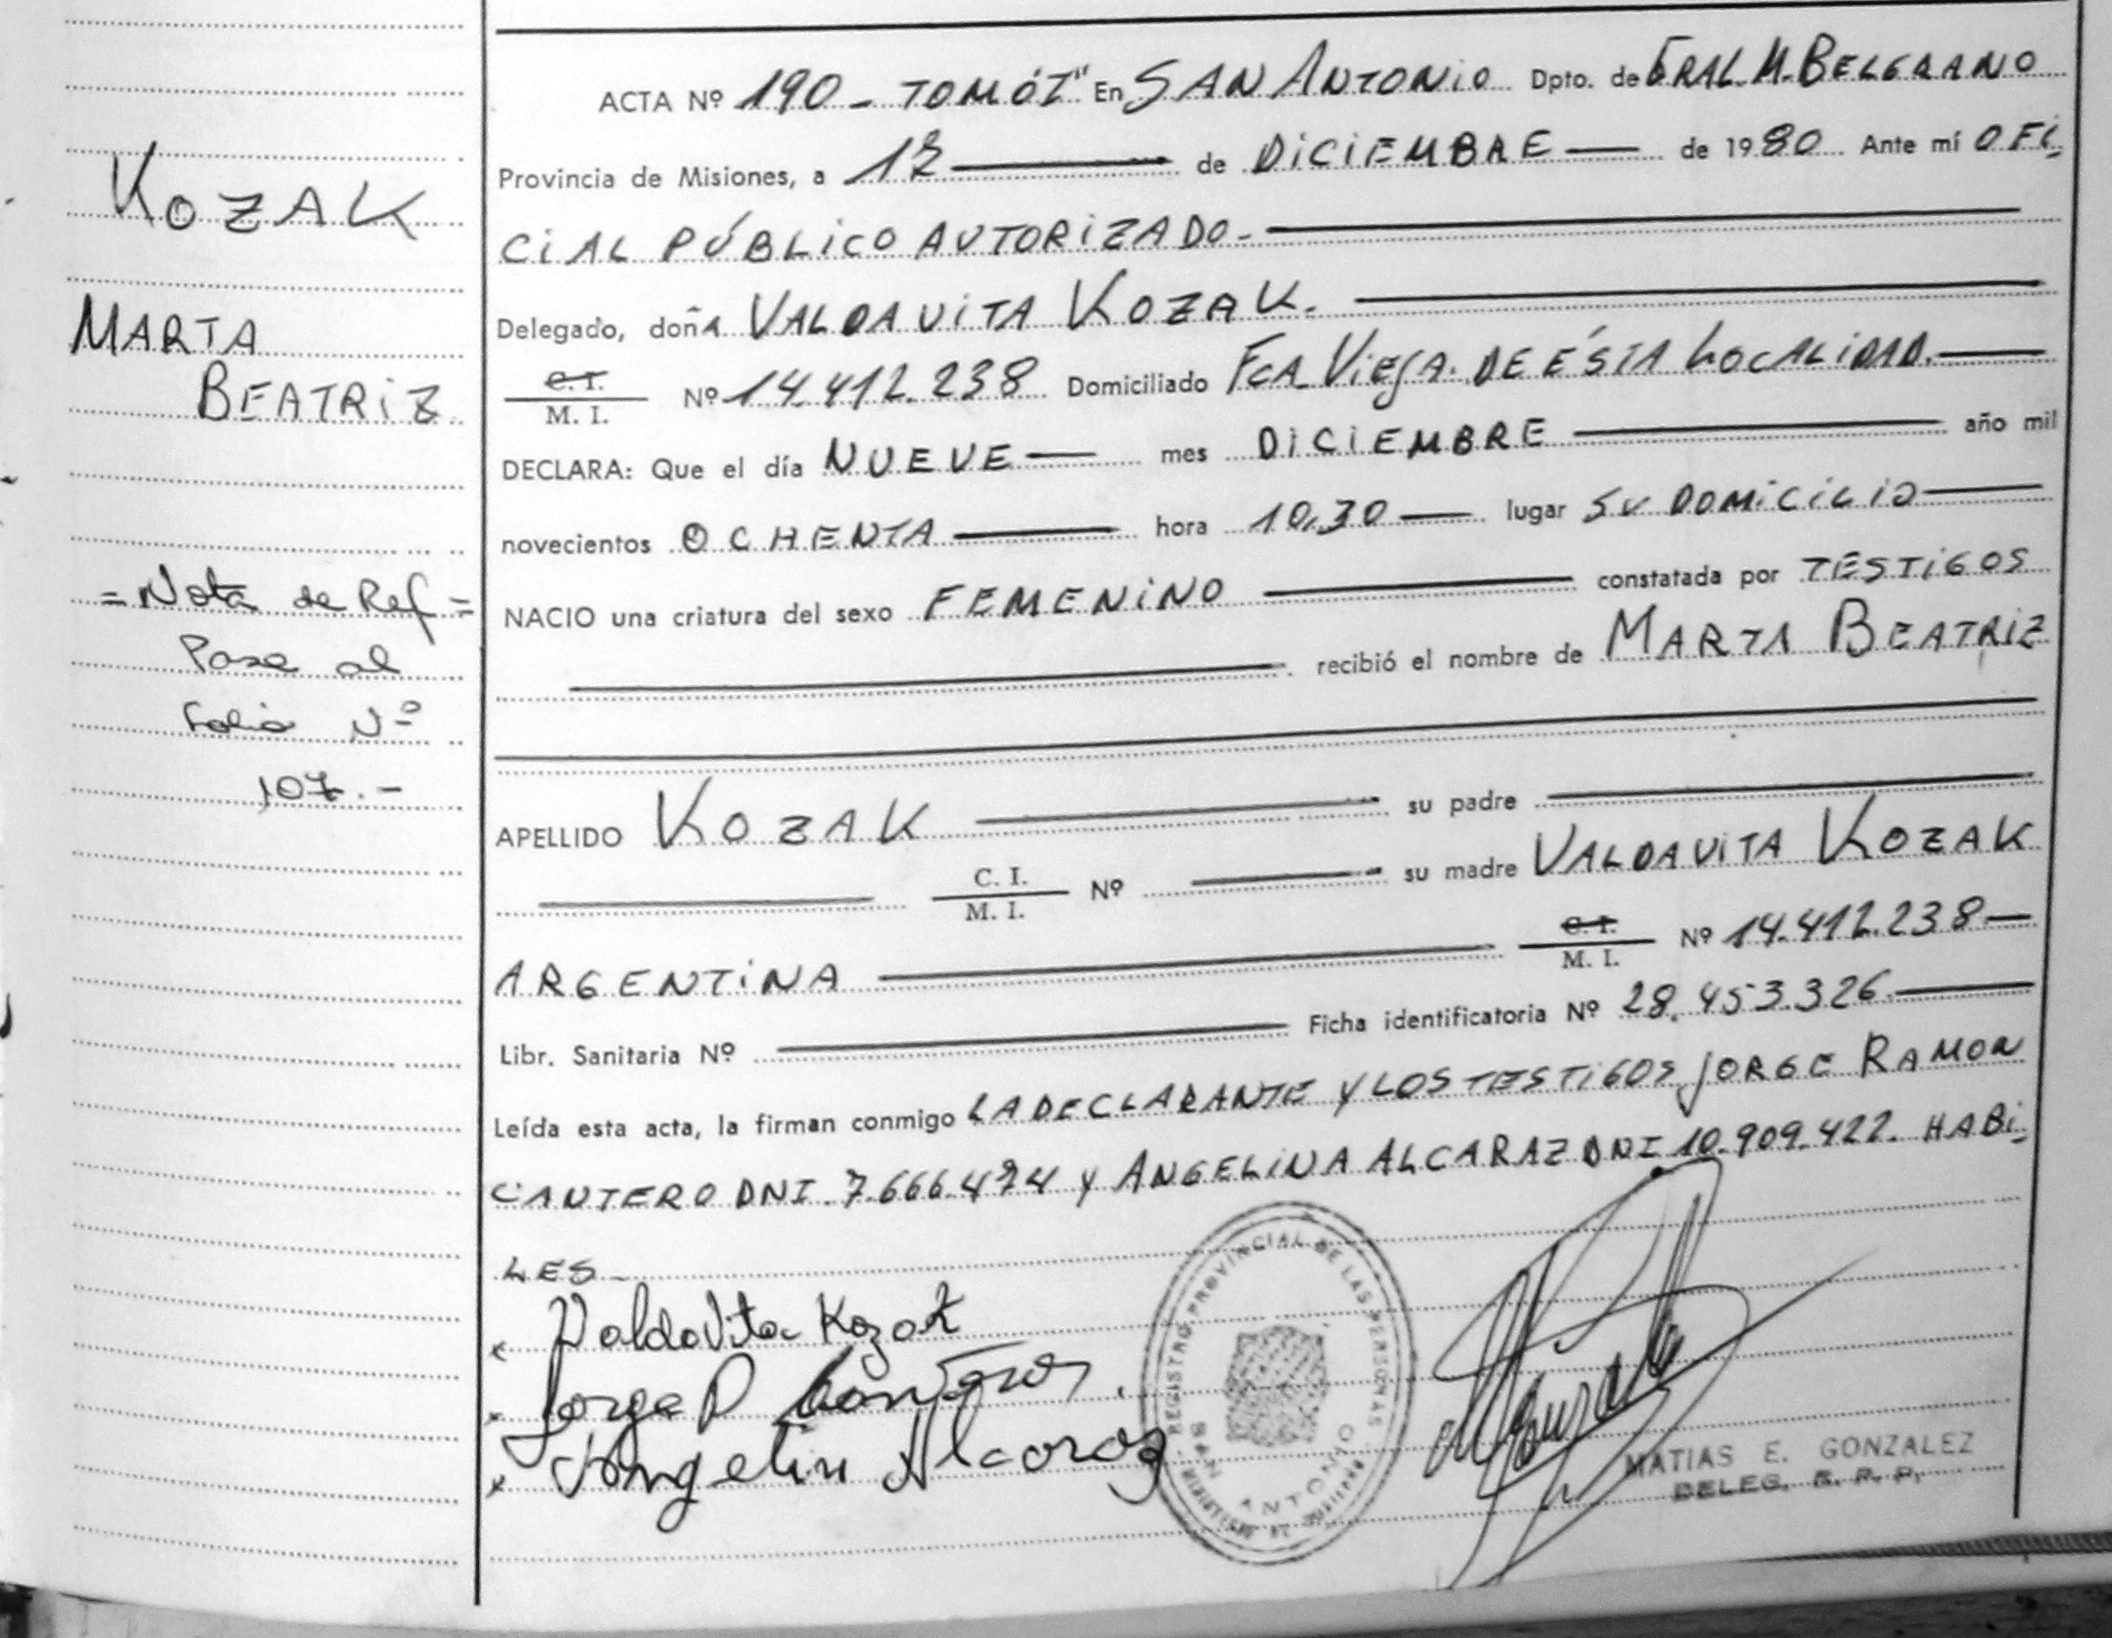 KOZAK
MARTA
BEATRIZ
= Nota de Ref =
Pase al
Folio Nº
107.-
ACTA Nº 190 - TOMO I" En SAN ANTONIO Dpto. de GRAL. M. BELGRANO
Provincia de Misiones, a 12 de DICIEMBRE de 1980 Ante mí OFI
CIAL PÚBLICO AUTORIZADO.-
Delegado, doñA VALDAVITA KOZAK.
C. I.
M. I. Nº 14.412.238 Domiciliado FCA VIEJA. DE ÉSTA LOCALIDAD.
DECLARA: Que el día NUEVE mes DICIEMBRE año mil
novecientos OCHENTA hora 10,30 lugar SU DOMICILIO
NACIO una criatura del sexo FEMENINO constatada por TESTIGOS
recibió el nombre de MARTA BEATRIZ
APELLIDO KOZAK su padre
C. I.
M. I. Nº su madre VALDAVITA KOZAK
ARGENTINA C. I.
M. I. Nº 14.412.238
Libr. Sanitaria Nº Ficha identificatoria Nº 28.453.326.
Leída esta acta, la firman conmigo LA DECLARANTE Y LOS TESTIGOS JORGE RAMON
CANTERO DNI. 7.666.474 y ANGELINA ALCARAZ DNI 10.909.422. HABI
LES
x Valdavita Kozak
x Jorge R Canteros
x Angelin Alcaraz
REGISTRO PROVINCIAL DE LAS PERSONAS
SAN ANTONIO
MATIAS E. GONZALEZ
DELEG. R. P. P.